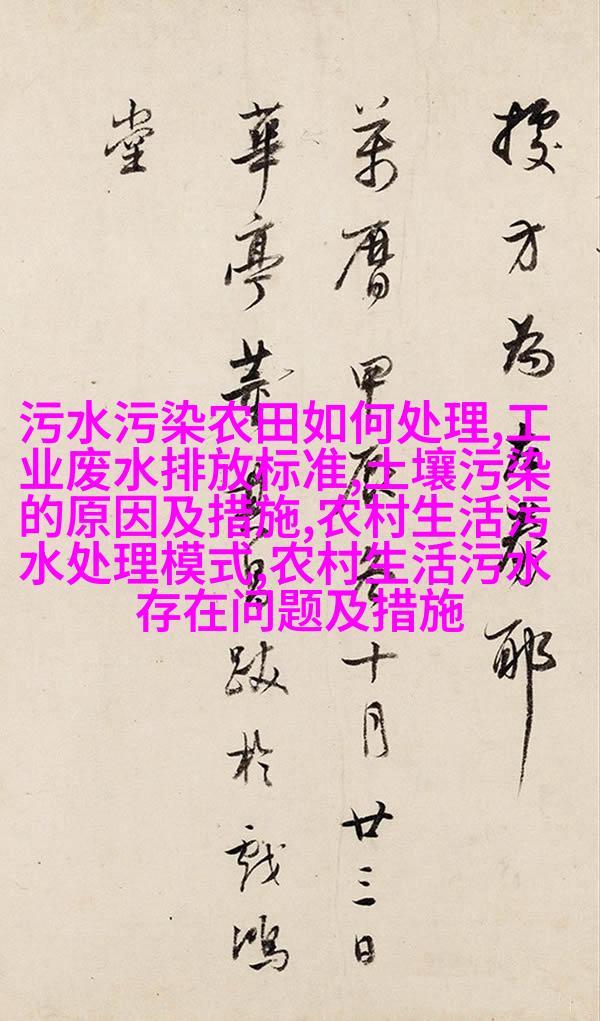 方為耶
萬曆甲辰冬十月廿三日
華亭董其昌跋於戲鴻
堂
污水污染农田如何处理,工
业废水排放标准,土壤污染
的原因及措施,农村生活污
水处理模式,农村生活污水
存在问题及措施